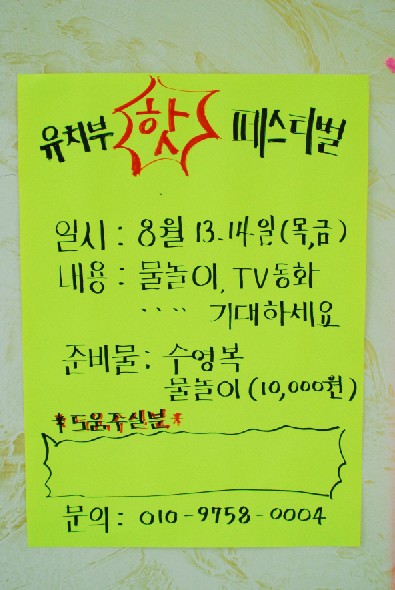 유치부 핫 페스티벌
일시 : 8월 13.14일(목,금)
내용 : 물놀이, TV동화
···· 기대하세요
준비물 : 수영복
물놀이 (10,000원)
*도움주실분*
문의 : 010-9758-0004